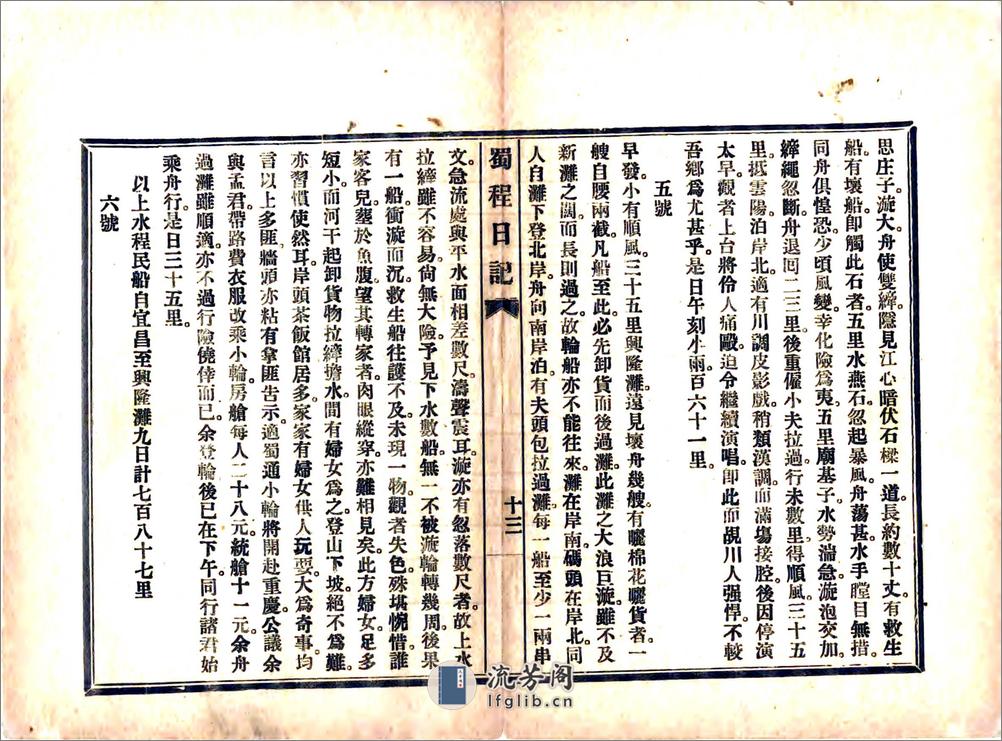 思庄子漩大舟使雙縴隱見江心暗伏石樑一道。長約數十丈。有救生
船有壞船即觸此石者。五里水燕石忽起暴風舟蕩甚水手瞠目無措。
同舟俱惶恐。少頃風變。幸化險爲夷。五里廟基子水勢湍急。漩泡交加
縴繩忽斷舟退囘二三里後重僱小夫拉過行未數里得順風三十五
里。抵雲陽泊岸北適有川調皮影戲稍類漢調而滿塲接腔後因停演
太早。觀者上台將伶人痛毆迫令繼續演唱卽此而覘川人强悍不較
吾鄉爲尤甚乎。是日午刻小雨。百六十一里。
五號
早發小有順風三十五里興隆灘遠見壞舟幾艘有曬棉花曬貨者一
艘自腰兩截凡船至此必先卸貨而後過灘此灘之大浪巨漩雖不及
新灘之闊而長則過之。故輪船亦不能往來。灘在岸南碼頭在岸北。同
人自灘下登北岸舟向南岸泊有夫頭包拉過灘。每一船至少一兩串
蜀程日記
十三
文。急流處與平水面相差數尺。濤聲震耳。漩亦有忽落數尺者。故上水
拉縴雖不容易。尙無大險。予見下水數船。無一不被漩輪轉幾周。後果
有一船衝漩而沉。救生船往護不及未現一物觀者失色。殊堪惋惜誰
家客兒塟於魚腹望其轉家者。肉眼縱穿亦難相見矣。此方婦女足多
短小而河干起卸貨物拉縴擔水間有婦女爲之。登山下坡絕不爲難
亦習慣使然耳。岸頭茶飯館居多。家家有婦女供人玩耍大爲奇事。均
言以上多匪。牆頭亦粘有拿匪告示。適蜀通小輪將開赴重慶。公議余
與孟君帶路費衣服改乘小輪房艙每人二十八元。統艙十一元。余舟
過灘雖順適亦不過行險僥倖而已。余登輪後已在下午。同行諸君始
乘舟行是日三十五里。
以上水程民船自宜昌至興隆灘九日計七百八十七里
六號
流芳阁
lfglib.cn